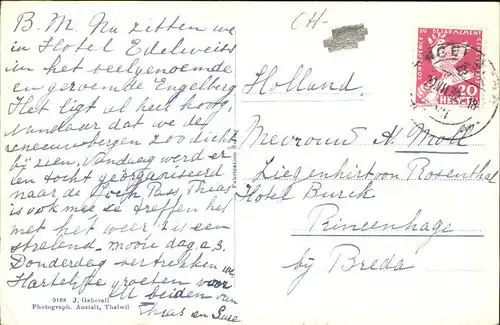 B. M. Nu zitten we
in Hotel Edelweiss
in het veelgenoemde
en geroemde Engelberg
Het ligt al heel hoog,
vandaar dat we de
sneeuwbergen zoo dicht
bij zien. Vandaag werd er
een tocht georganiseerd
naar de Joch Pas, Thias
is ook mee. Ze treffen het
met het weer, 't is een
stralend mooie dag. a.s.
Donderdag vertrekken we
Hartelijke groeten voor
U beiden van
Thias en
9168 J. Gaberell
Photograph. Anstalt, Thalwil
CH-
Holland.
Mevrouw A. Moll
Liegenhirt von Rosenthal
Hotel Burck
Princenhage
bij Breda
CONFERENCE DU DESARMEMENT
20
HELVETIA